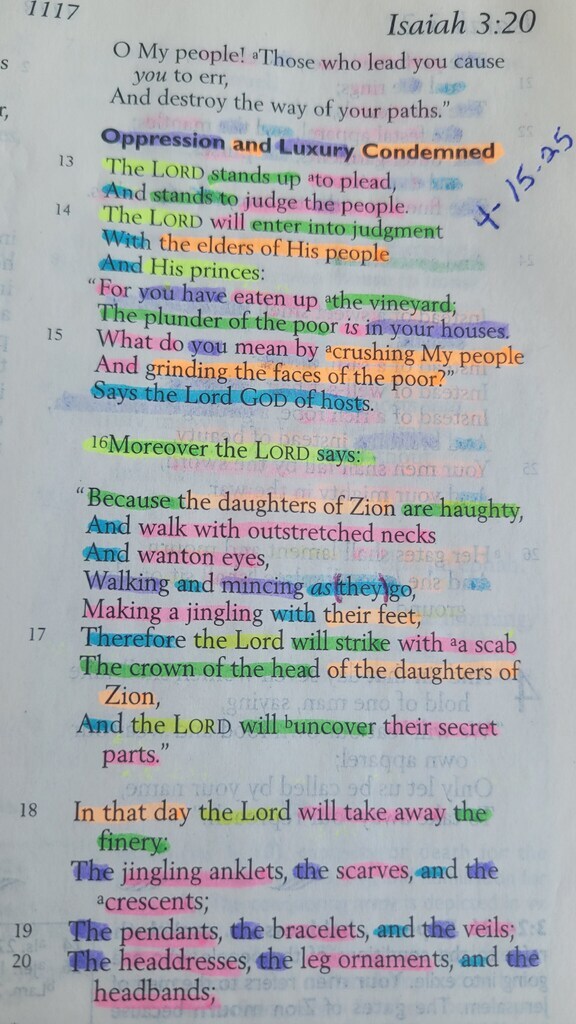 1117
Isaiah 3:20
s
r,
O My people! ᵃThose who lead you cause
you to err,
And destroy the way of your paths.”
Oppression and Luxury Condemned
13 The LORD stands up ᵃto plead,
And stands to judge the people.
4-15-25
14 The LORD will enter into judgment
With the elders of His people
And His princes:
“For you have eaten up ᵃthe vineyard;
The plunder of the poor is in your houses.
15 What do you mean by ᵃcrushing My people
And grinding the faces of the poor?”
Says the Lord GOD of hosts.
16Moreover the LORD says:
“Because the daughters of Zion are haughty,
And walk with outstretched necks
And wanton eyes,
Walking and mincing as (they) go,
Making a jingling with their feet,
17 Therefore the Lord will strike with ᵃa scab
The crown of the head of the daughters of
Zion,
And the LORD will ᵇuncover their secret
parts.”
18 In that day the Lord will take away the
finery:
The jingling anklets, the scarves, and the
ᵃcrescents;
19 The pendants, the bracelets, and the veils;
20 The headdresses, the leg ornaments, and the
headbands;